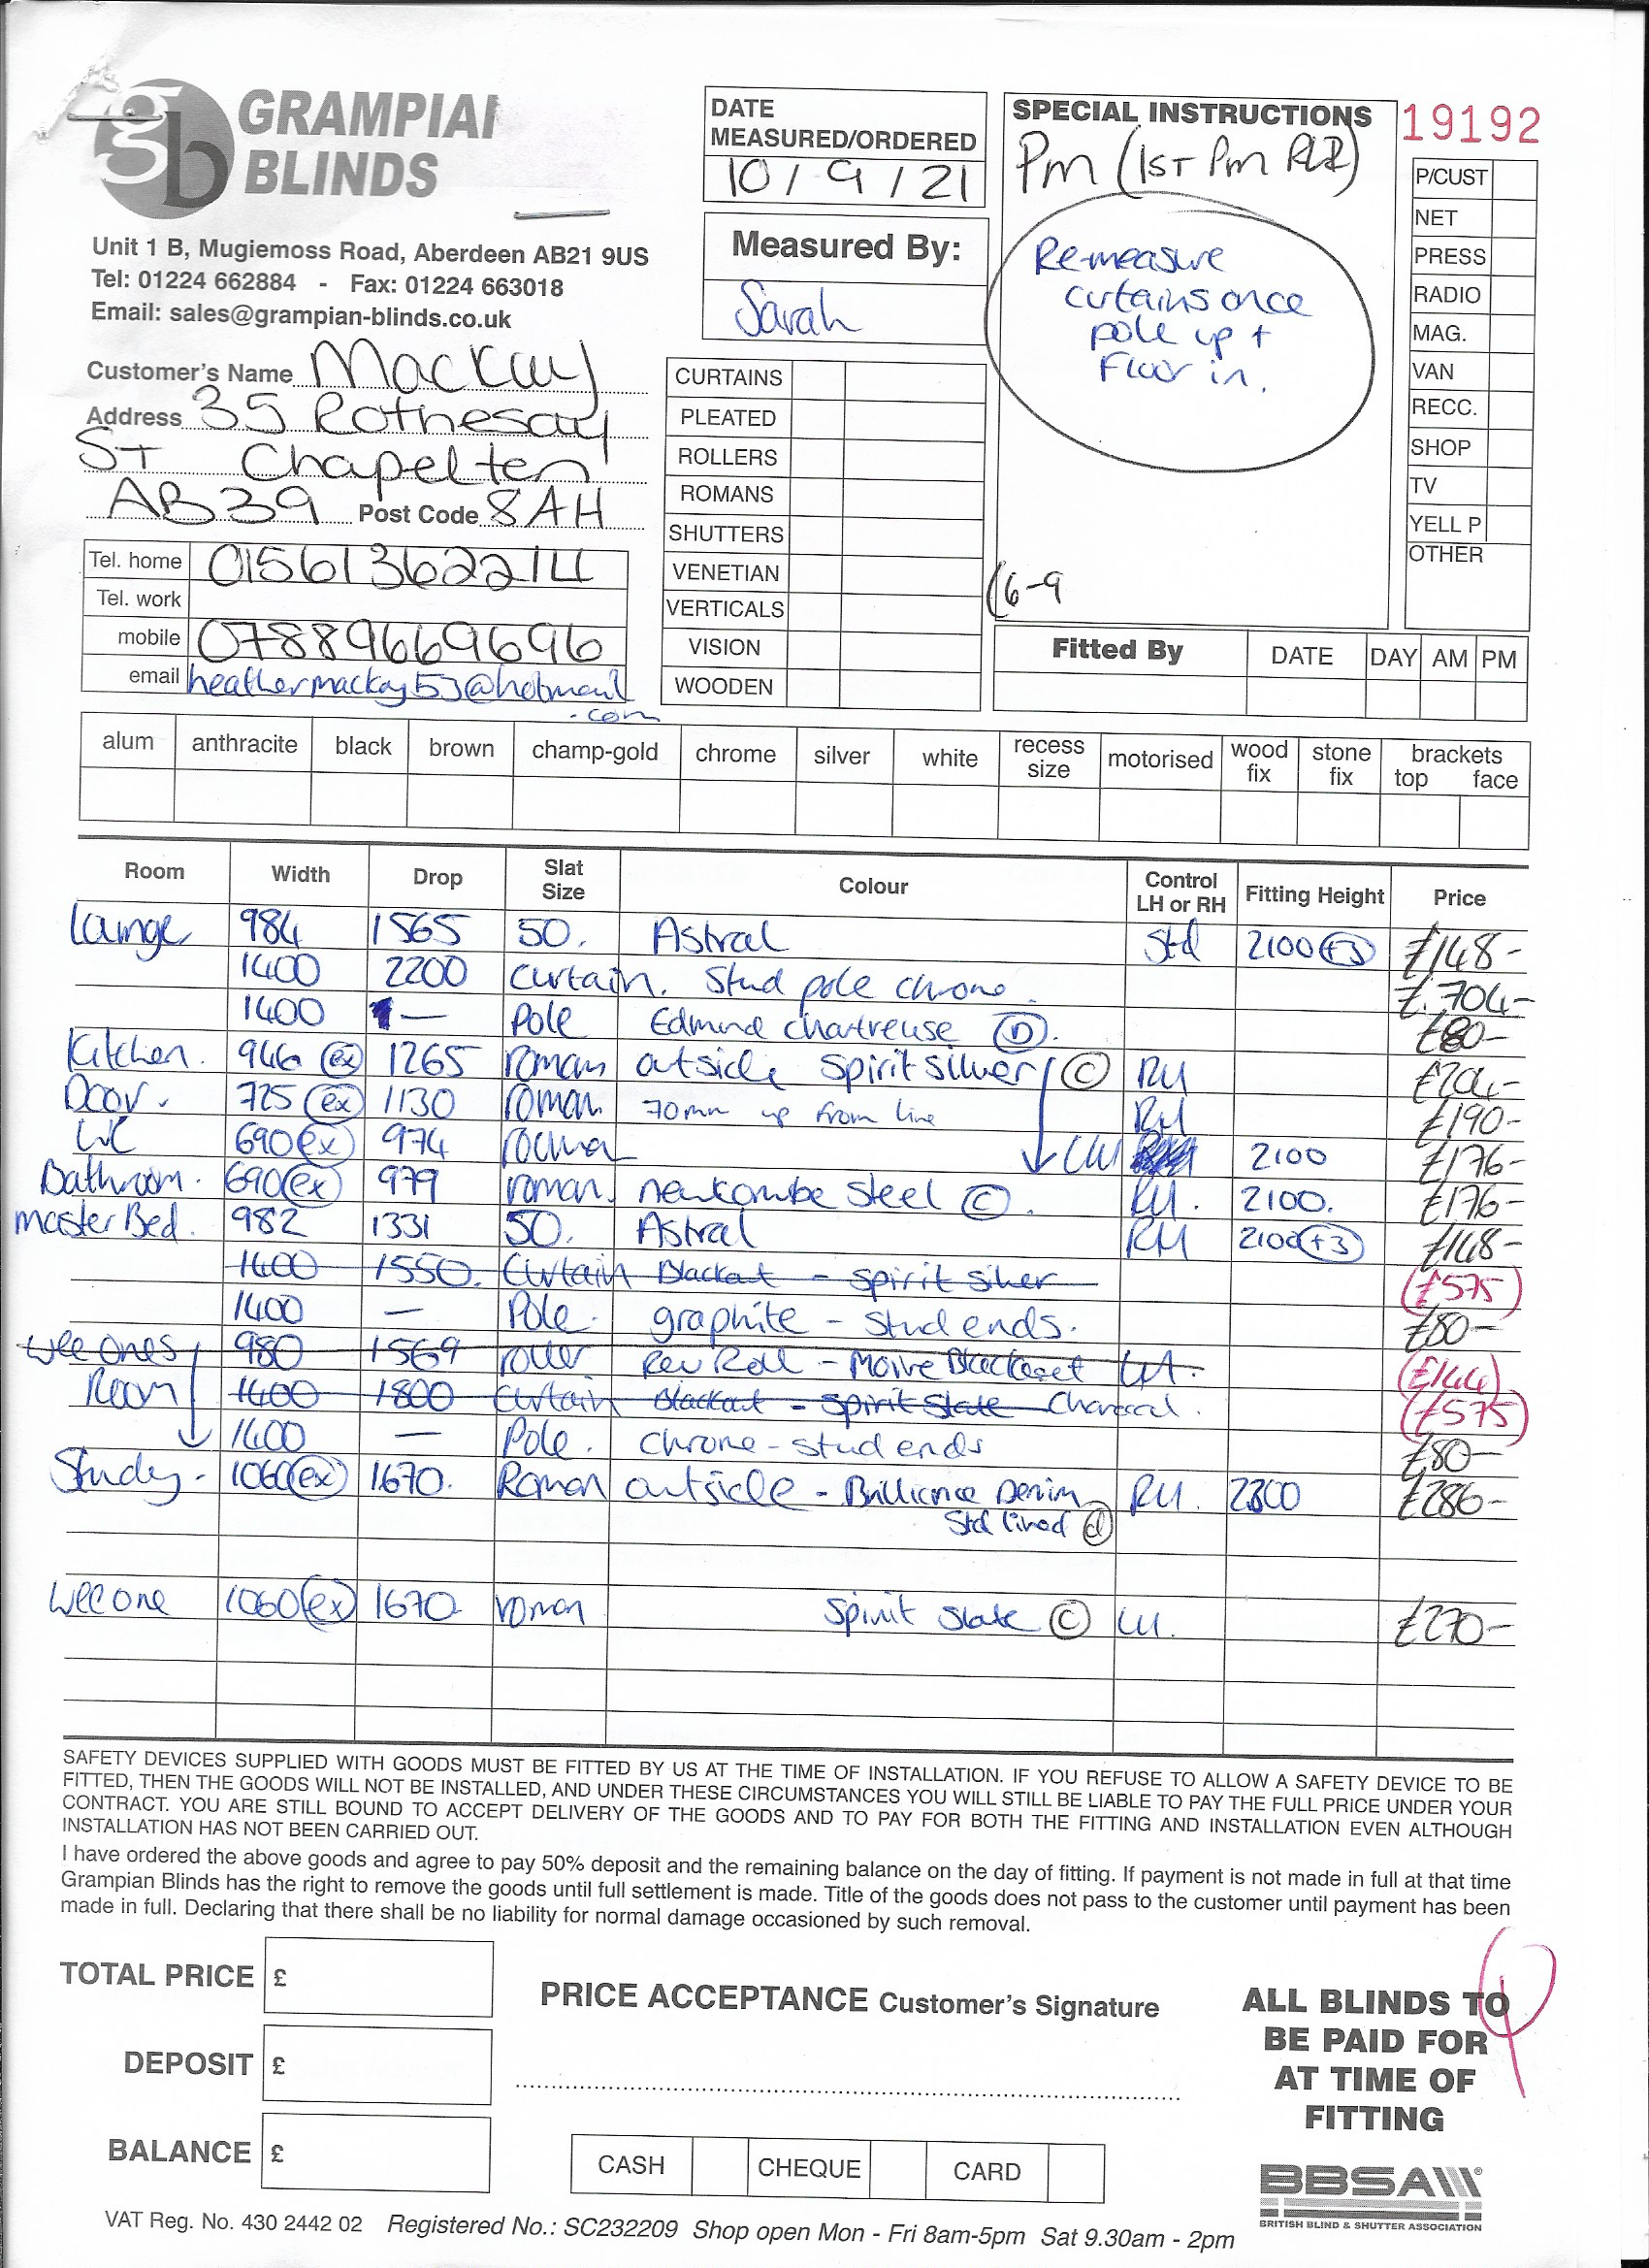 GRAMPIAN
BLINDS
Unit 1 B, Mugiemoss Road, Aberdeen AB21 9US
Tel: 01224 662884 - Fax: 01224 663018
Email: sales@grampian-blinds.co.uk
DATE
MEASURED/ORDERED
10/9/21
Measured By:
Sarah
SPECIAL INSTRUCTIONS
Pm (1st Pm PLZ)
Re-measure
curtains once
pole up +
Floor in.
(6-9
19192
P/CUST
NET
PRESS
RADIO
MAG.
VAN
RECC.
SHOP
TV
YELL P
OTHER
Customer's Name Mackay
Address 35 Rothesay
St Chapelton
AB39 Post Code 8AH
Tel. home 01561362214
Tel. work
mobile 07889669696
email heathermackay53@hotmail
.com
CURTAINS
PLEATED
ROLLERS
ROMANS
SHUTTERS
VENETIAN
VERTICALS
VISION
WOODEN
Fitted By DATE DAY AM PM
alum anthracite black brown champ-gold chrome silver white recess size motorised wood fix stone fix brackets top face
Room Width Drop Slat Size Colour Control LH or RH Fitting Height Price
Lounge 984 1565 50. Astral Std 2100 (+3) £148-
1400 2200 Curtain. Stud pole chrome. £704-
1400 — Pole Edmund chartreuse (D). £80-
Kitchen. 946 (ex) 1265 roman outside Spirit Silver (C) RH £204-
Door. 725 (ex) 1130 roman 70mm up from line RH £190-
WC 690 (ex) 974 roman LH 2100 £176-
Bathroom. 690 (ex) 979 roman. newcombe Steel (C). RH. 2100. £176-
master Bed. 982 1331 50. Astral RH 2100 (+3) £148-
1400 1550. Curtain Blackout - Spirit Silver (£575)
1400 — Pole. graphite - Stud ends. £80-
wee ones 980 1569 roller Rev Roll - Moire Blackout LH. (£144)
Room 1400 1800 Curtain Blackout - Spirit Slate Charcoal. (£575)
1400 — Pole. Chrome - stud ends £80-
Study - 1060 (ex) 1670. Roman outside - Brilliance Denim RH. 2300 £286-
Std lined (d)
Wee one 1060 (ex) 1670 roman Spirit Slate (C) LH. £270-
SAFETY DEVICES SUPPLIED WITH GOODS MUST BE FITTED BY US AT THE TIME OF INSTALLATION. IF YOU REFUSE TO ALLOW A SAFETY DEVICE TO BE
FITTED, THEN THE GOODS WILL NOT BE INSTALLED, AND UNDER THESE CIRCUMSTANCES YOU WILL STILL BE LIABLE TO PAY THE FULL PRICE UNDER YOUR
CONTRACT. YOU ARE STILL BOUND TO ACCEPT DELIVERY OF THE GOODS AND TO PAY FOR BOTH THE FITTING AND INSTALLATION EVEN ALTHOUGH
INSTALLATION HAS NOT BEEN CARRIED OUT.
I have ordered the above goods and agree to pay 50% deposit and the remaining balance on the day of fitting. If payment is not made in full at that time
Grampian Blinds has the right to remove the goods until full settlement is made. Title of the goods does not pass to the customer until payment has been
made in full. Declaring that there shall be no liability for normal damage occasioned by such removal.
TOTAL PRICE £
DEPOSIT £
BALANCE £
PRICE ACCEPTANCE Customer's Signature
CASH CHEQUE CARD
ALL BLINDS TO
BE PAID FOR
AT TIME OF
FITTING
BBSA
BRITISH BLIND & SHUTTER ASSOCIATION
VAT Reg. No. 430 2442 02 Registered No.: SC232209 Shop open Mon - Fri 8am-5pm Sat 9.30am - 2pm